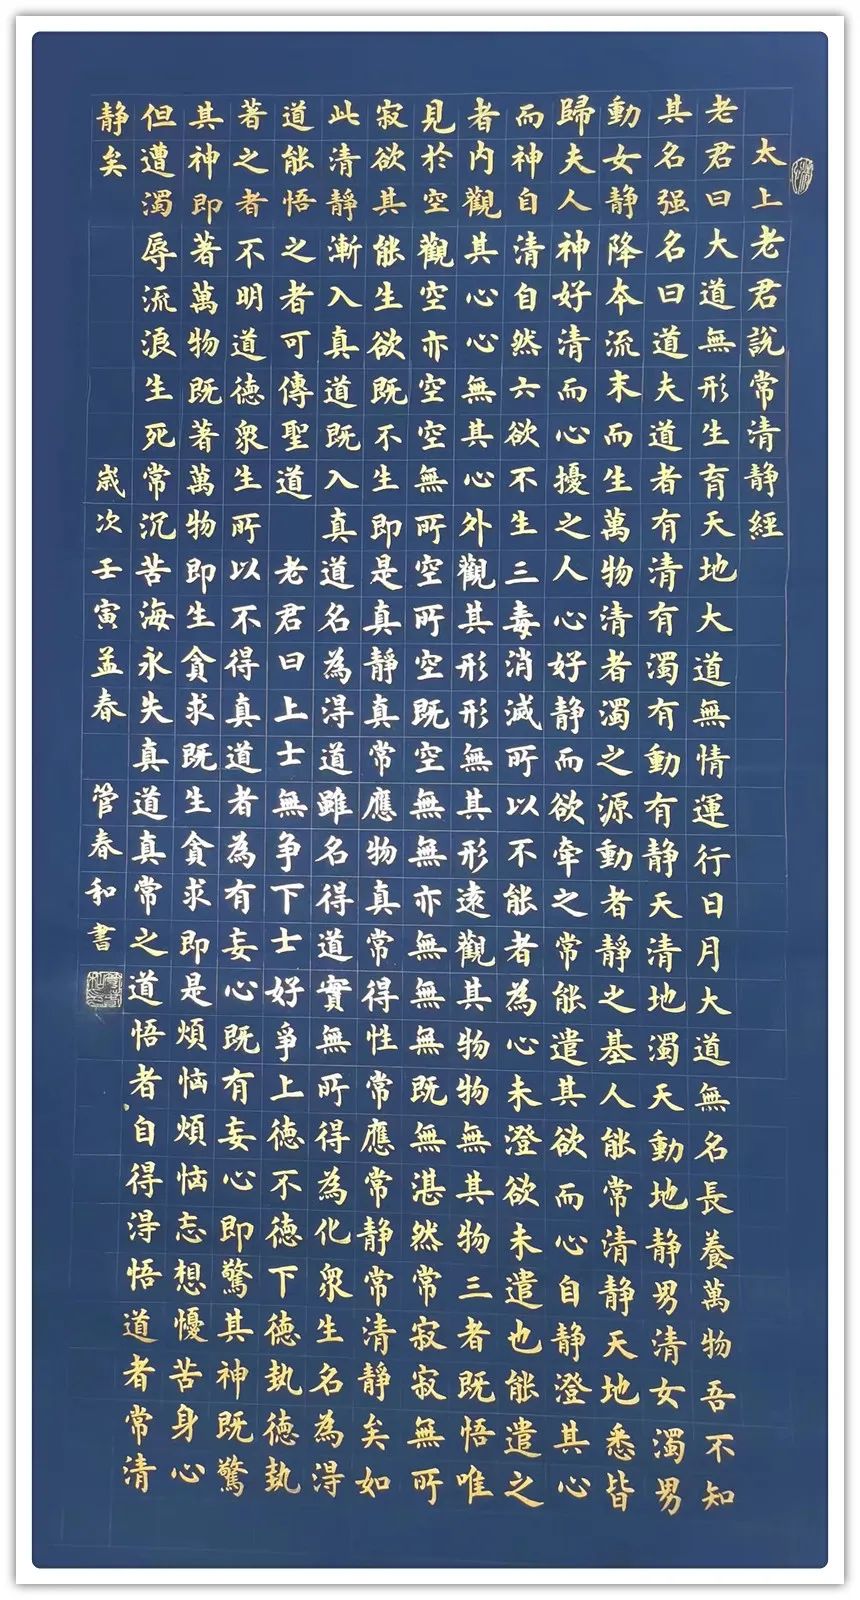 太上老君說常清静經
老君曰大道無形生育天地大道無情運行日月大道無名長養萬物吾不知
其名强名曰道夫道者有清有濁有動有静天清地濁天動地静男清女濁男
動女静降本流末而生萬物清者濁之源動者静之基人能常清静天地悉皆
歸夫人神好清而心擾之人心好静而欲牽之常能遣其欲而心自静澄其心
而神自清自然六欲不生三毒消滅所以不能者為心未澄欲未遣也能遣之
者内觀其心心無其心外觀其形形無其形遠觀其物物無其物三者既悟唯
見於空觀空亦空空無所空所空既空無無亦無無無既無湛然常寂寂無所
寂欲其能生欲既不生即是真静真常應物真常得性常應常静常清静矣如
此清静漸入真道既入真道名為得道雖名得道實無所得為化衆生名為得
道能悟之者可傳聖道 老君曰上士無争下士好爭上德不德下德執德執
著之者不明道德衆生所以不得真道者為有妄心既有妄心即驚其神既驚
其神即著萬物既著萬物即生貪求既生貪求即是煩恼煩恼忘想懮苦身心
但遭濁辱流浪生死常沉苦海永失真道真常之道悟者自得得悟道者常清
静矣 歲次壬寅孟春 管春和書